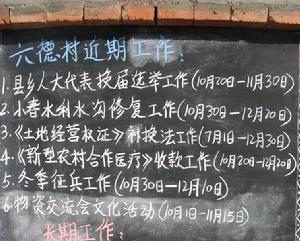 六德村近期工作:
1.县乡人大代表换届选举工作(10月20日—11月30日)
2.小春水利水沟修复工作(10月30日—12月20日)
3.《土地经营权证》补换法工作(7月1日—12月30日)
4.《新型农村合作医疗》收款工作(10月20日—12月20日)
5.冬季征兵工作(10月30日—12月10日)
6.物资交流会文化活动(10月1日—11月15日)
长期工作: